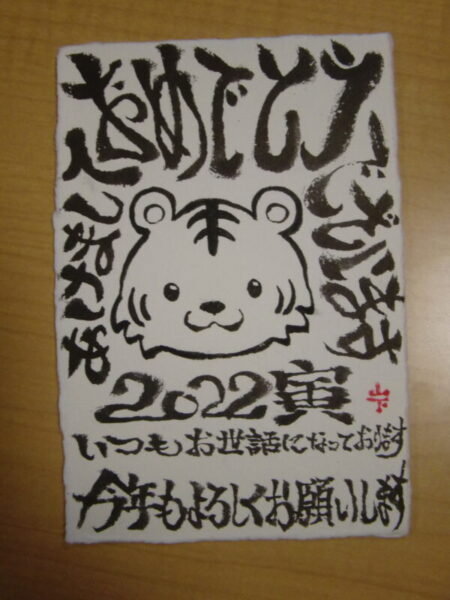 あけまして
おめでとう
ございます
2022寅
いつもお世話になっております
今年もよろしくお願いします